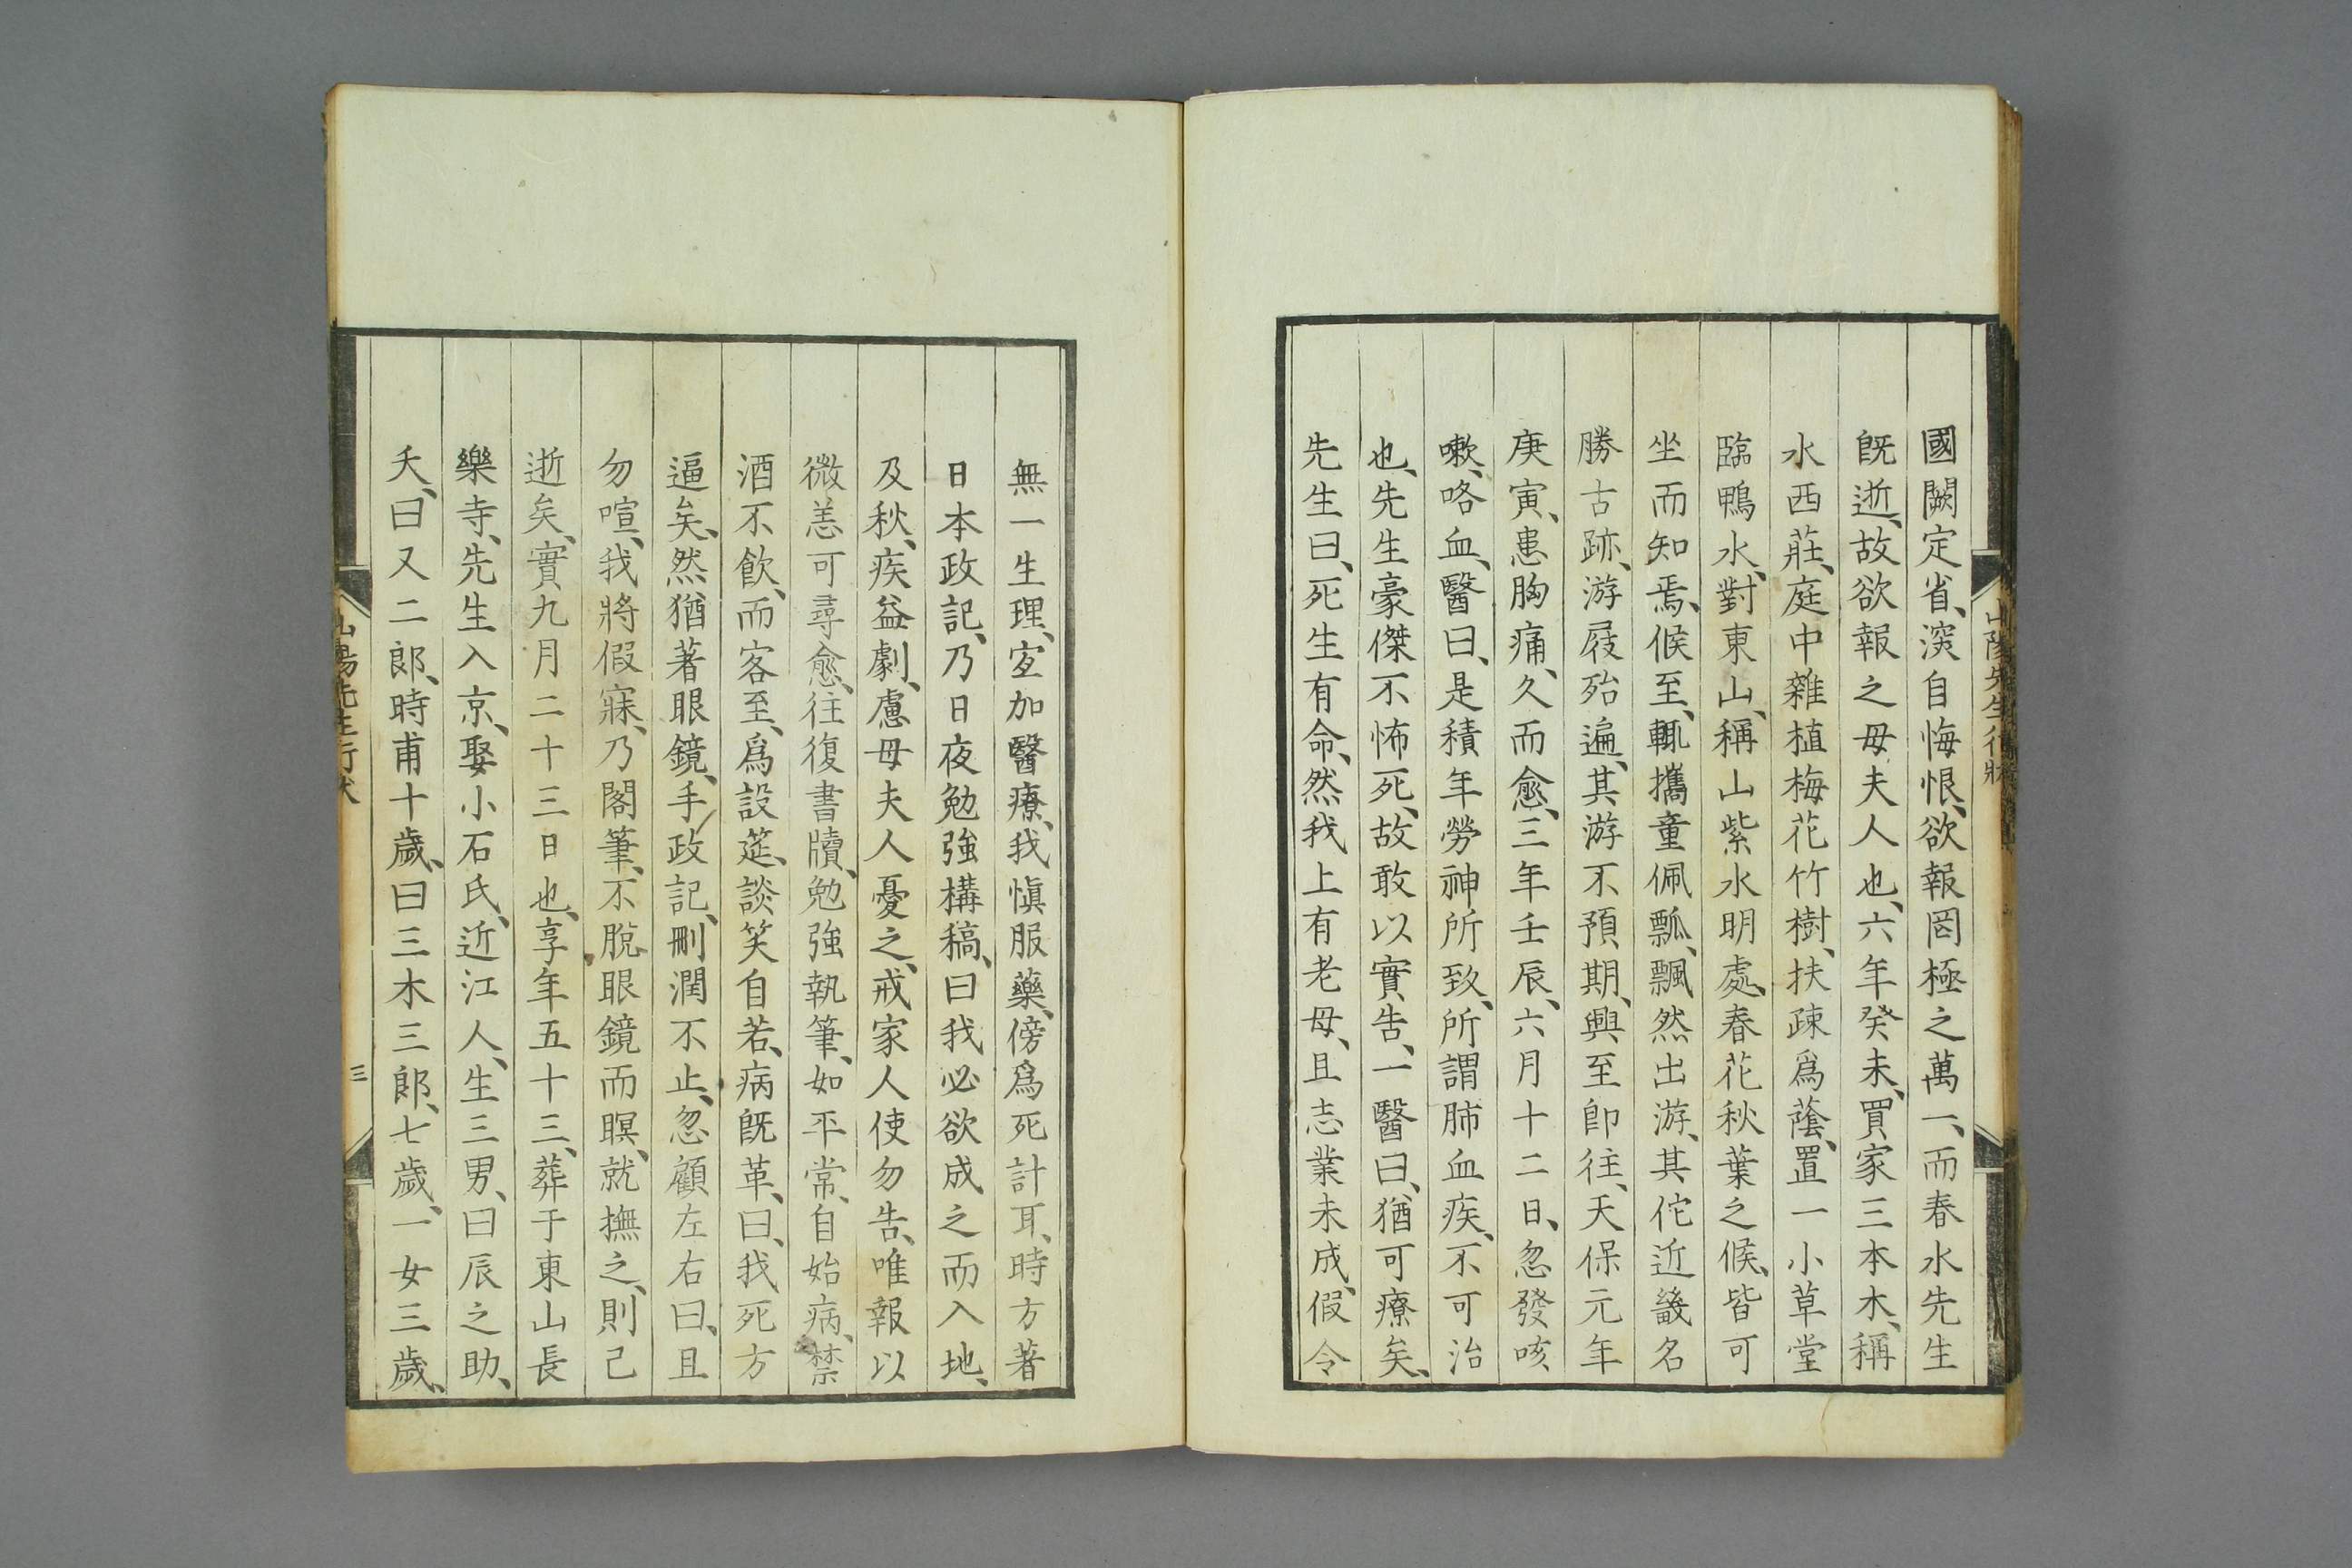 國闕定省、深自悔恨、欲報罔極之萬一、而春水先生
既逝、故欲報之母夫人也、六年癸未、買家三本木、稱
水西莊、庭中雜植梅花竹樹、扶疎爲蔭、置一小草堂
臨鴨水、對東山、稱山紫水明處、春花秋葉之候、皆可
坐而知焉、候至、輒攜童佩瓢、飄然出游、其佗近畿名
勝古跡、游屐殆遍、其游不預期、興至卽往、天保元年
庚寅、患胸痛、久而愈、三年壬辰、六月十二日、忽發咳
嗽、咯血、醫曰、是積年勞神所致、所謂肺血疾、不可治
也、先生豪傑不怖死、故敢以實告、一醫曰、猶可療矣、
先生曰、死生有命、然我上有老母、且志業未成、假令
無一生理、宜加醫療、我愼服藥、傍爲死計耳、時方著
日本政記、乃日夜勉強構稿、曰我必欲成之而入地、
及秋、疾益劇、慮母夫人憂之、戒家人使勿告、唯報以
微恙可尋愈、往復書牘、勉強執筆、如平常、自始病、禁
酒不飲、而客至、爲設筵、談笑自若、病既革、曰、我死方
逼矣、然猶著眼鏡、手政記、刪潤不止、忽顧左右曰、且
勿喧、我將假寐、乃閣筆、不脫眼鏡而瞑、就撫之、則已
逝矣、實九月二十三日也、享年五十三、葬于東山長
樂寺、先生入京、娶小石氏、近江人、生三男、曰辰之助、
夭、曰又二郎、時甫十歲、曰三木三郎、七歲、一女三歲、
山陽先生行狀
三
山陽先生行狀